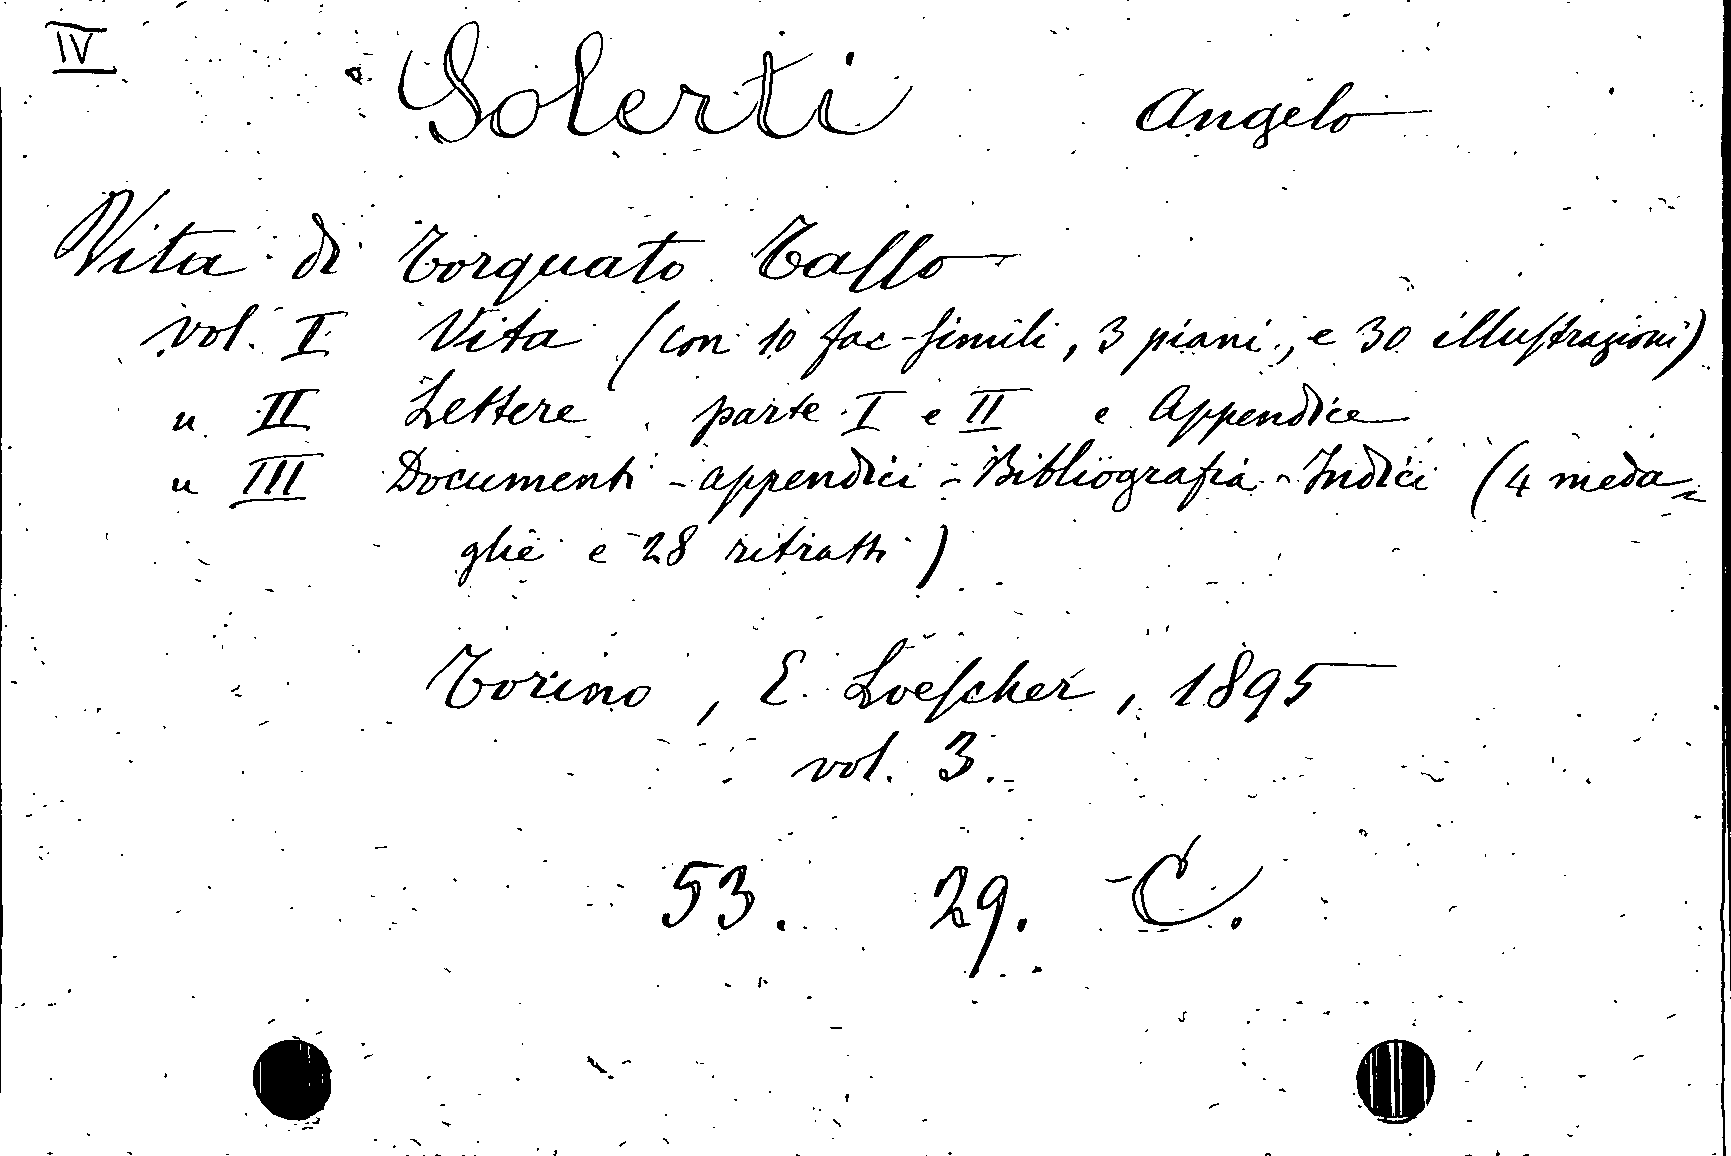 IV
Solerti Angelo
Vita di Torquato Tasso
vol. I Vita (con 10 fac-simili, 3 piani, e 30 illustrazioni)
" II Lettere parte I e II e Appendice
" III Documenti - appendici - Bibliografia - Indici (4 meda=
glie e 28 ritratti)
Torino, E. Loescher, 1895
vol. 3.
53. 29. C.